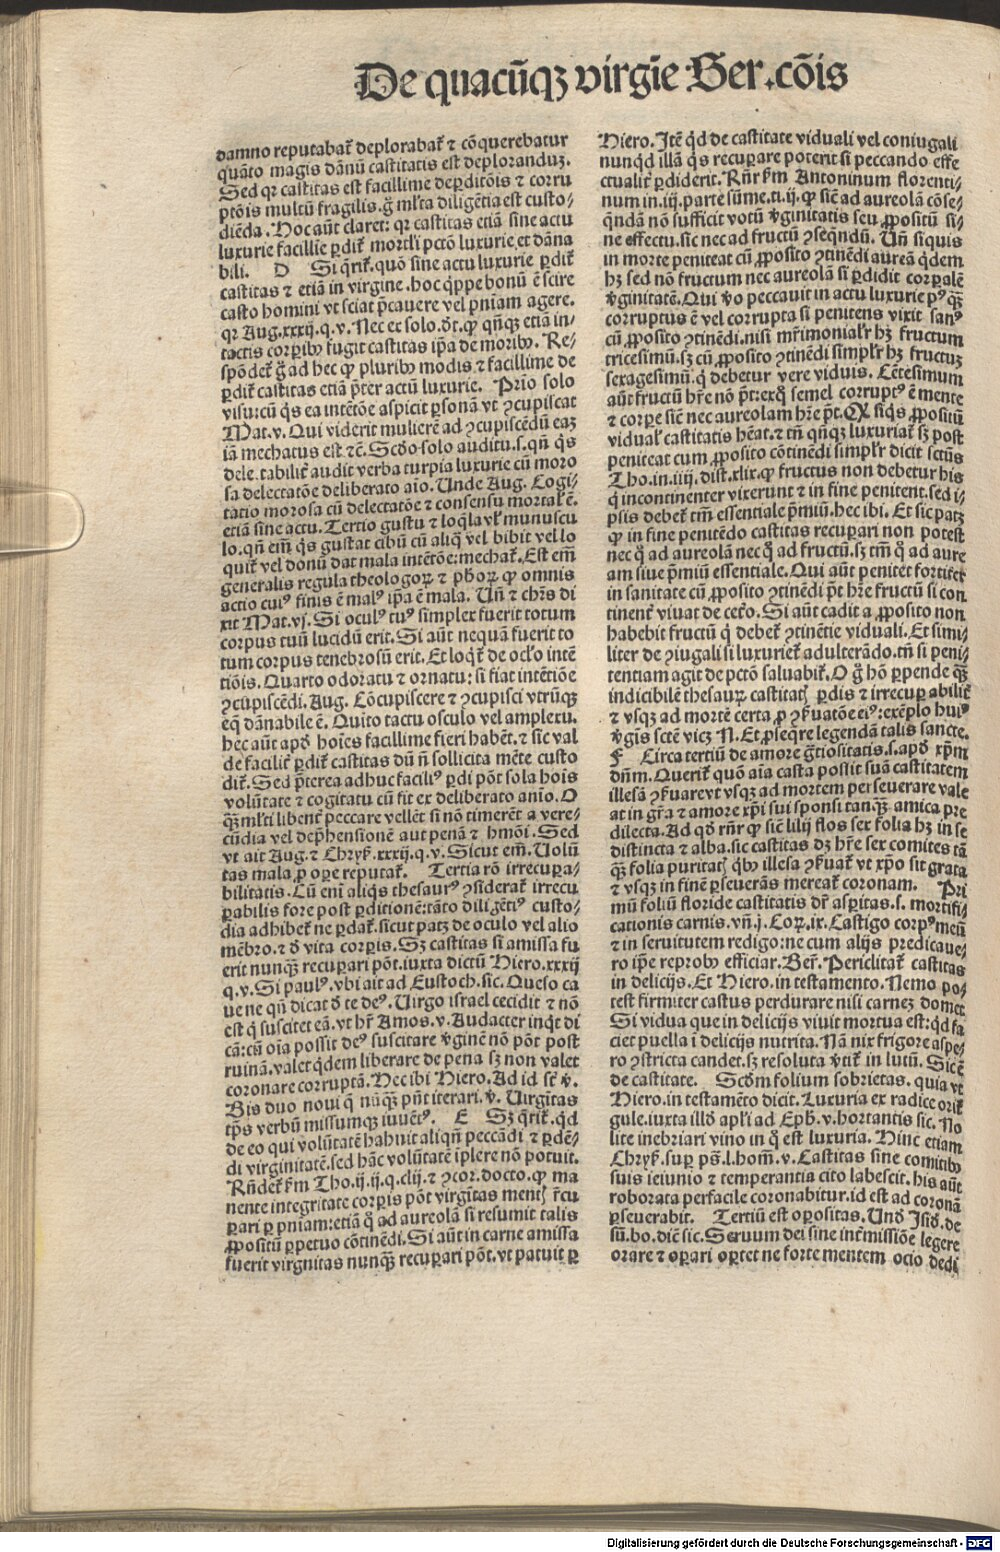 De quacūqꝫ virgīe Ser.cōis
damno reputabat̄ deplorabat̄ ⁊ cōquerebatur
quāto magis dānū castitatis est deploranduꝫ.
Sed qꝛ castitas est facillime deꝑditōis ⁊ corru
ptōis multū fragilis.g̃ ml̄ta diligētia est custo⸗
diēda. Hoc aūt claret: qꝛ castitas etiā sine actu
luxurie facillie ꝑdit̄ mortl̓i pctō luxurie et dāna
bili. D Si q̄rit̄.quō sine actu luxurie ꝑdit̄
castitas ⁊ etiā in virgine.hoc q̓ppe bonū ē scire
casto homini vt sciat p̄cauere vel pn̄iam agere.
qꝛ Aug.xxxij.q.v. Nec ex solo.ðt.ꝙ qn̄qꝫ etiā in⸗
tactis corꝑibꝰ fugit castitas ip̄a de moribꝰ. Re⸗
spōdet̄ g̃ ad hec ꝙ pluribꝰ modis ⁊ facillime de
ꝑdit̄ castitas etiā p̄ter actū luxurie. Prīo solo
visu:cū q̓s ea intētōe aspicit ꝑsonā vt ꝯcupiscat
Mat.v. Qui viderit mulierē ad ꝯcupiscēdū eaꝫ
iā mechatus est ⁊c̄. Scd̓o solo auditu.s.qn̄ q̓s
dele.tabilit̄ audit verba turpia luxurie cū moro
sa delectatōe deliberato aīo. Unde Aug. Cogi⸗
tatio morosa cū delectatōe ⁊ consensu mortal̓ ē.
etiā sine actu. Tertio gustu ⁊ loq̄la vl̓ munuscu
lo.qn̄ em̄ q̓s gustat cibū cū aliq̓ vel bibit vel lo
quit̄ vel donū dat mala intētōe:mechat̄. Est em̄
generalis regula theologoꝝ ⁊ ph̄oꝝ ꝙ omnis
actio cuiꝰ finis ē malꝰ ip̄a ē mala. Un̄ ⁊ chr̄s di
xit Mat.vj. Si oculꝰ tuꝰ simplex fuerit totum
corpus tuū lucidū erit. Si aūt nequā fuerit to
tum corpus tenebrosū erit. Et loq̓t̄ de ocl̓o intē
tiōis. Quarto odoratu ⁊ ornatu: si fiat intētiōe
ꝯcupiscēdi. Aug. Cōcupiscere ⁊ ꝯcupisci vtrūqꝫ
eq̄ dānabile ē. Quīto tactu osculo vel amplexu.
hec aūt apð hoīes facillime fieri habēt.⁊ sic val
de facilit̄ ꝑdit̄ castitas dū n̄ sollicita mēte custo
dit̄. Sed p̄terea adhuc faciliꝰ ꝑdi pōt sola hoīs
volūtate ⁊ cogitatu cū fit ex deliberato anīo. O
qꝫ̄ ml̓ti libent̄ peccare vellēt si nō timerēt a vere⸗
cūdia vel dep̄hensionē aut penā ⁊ hmōi. Sed
vt ait Aug.⁊ Chryſ.xxxij.q.v. Sicut em̄. Uolū
tas mala ꝓ oꝑe reputat̄. Tertia rō irrecuꝑa⸗
bilitatis. Cū enī aliq̓s thesaurꝰ ꝯsiderat̄ irrecu
ꝑabilis fore post ꝑditionē:tāto diligētiꝰ custo⸗
dia adhibet̄ ne ꝑdat̄.sicut patꝫ de oculo vel alio
mēbro.⁊ ð vita corꝑis. Sꝫ castitas si amissa fu
erit nunqꝫ̄ recuꝑari pōt.iuxta dictū Hiero.xxxij
q.v. Si paulꝰ.vbi ait ad Eustoch.sic. Queso ca
ue ne qn̄ dicat ð te deꝰ. Uirgo israel cecidit ⁊ nō
est q̓ suscitet eā.vt hr̄ Amos.v. Audacter inq̓t di
cā:cū oīa possit deꝰ suscitare v̓ginē nō pōt post
ruinā.valet q̓dem liberare de pena sꝫ non valet
coronare corruptā. Hec ibi Hiero. Ad id st̄ v̓.
Bis duo noui q̄ nūqꝫ̄ pn̄t iterari.v̓. Uirgītas
tp̄s verbū missumqꝫ iuuētꝰ. E Sꝫ q̄rit̄.qd̓
de eo qui volūtatē habuit aliqn̄ peccādi ⁊ ꝑdē⸗
di virginitatē.sed hāc volūtatē īplere nō potuit.
Rn̄det̄ ẜm Tho.ij.ij.q.clij.⁊ ꝯcor.docto.ꝙ ma
nente integritate corꝑis pōt virgītas mentꝭ r̄cu
ꝑari ꝑ pn̄iam:etiā q̓ ad aureolā si resumit talis
ꝓpositū ꝑpetuo cōtinēdi. Si aūt in carne amissa
fuerit virgnitas nunqꝫ̄ recuꝑari pōt.vt patuit ꝑ
Hiero. Itē qd̓ de castitate viduali vel coniugali
nunqd̓ illā q̓s recuꝑare poterit si peccando effe
ctualit̄ ꝑdiderit. Rn̄r ẜm Antoninum florenti⸗
num in.iij.parte sūme.ti.ij.ꝙ sic̄ ad aureolā cōse⸗
q̄ndā nō sufficit votū v̓ginitatis seu ꝓpositū si⸗
ne effectu.sic nec ad fructū ꝯseq̄ndū. Un̄ si quis
in morte peniteat cū ꝓposito ꝯtinēdi aureā q̓dem
hꝫ sed nō fructum nec aureolā si ꝑdidit corꝑalē
v̓ginitatē. Qui v̓o peccauit in actu luxurie pꝰqꝫ̄
corruptus ē vel corrupta si penitens vixit sanꝰ
cū ꝓposito ꝯtinēdi.nisi mr̄imonialr̓ hꝫ fructum
tricesimū.sꝫ cū ꝓposito ꝯtinēdi simpl̓r hꝫ fructuꝫ
sexagesimū.q̓ debetur vere viduis. Cētesimum
aūt fructū hr̄e nō pt̄:ex q̓ semel corruptꝰ ē mente
⁊ corꝑe sic̄ nec aureolam hr̄e pt̄. Qꝛ siq̓s ꝓpositū
vidual̓ castitatis hēat.⁊ tn̄ qn̄qꝫ luxuriat̄ sꝫ post
peniteat cum ꝓposito cōtinēdi simpl̓r dicit sctūs
Tho.in.iiij.dist.xlix.ꝙ fructus non debetur his
q̓ incontinenter vixerunt ⁊ in fine penitent.sed i⸗
psis debet̄ tm̄ essentiale p̄miū.hec ibi. Et sic patꝫ
ꝙ in fine penitēdo castitas recuꝑari non potest
nec q̓ ad aureolā nec q̓ ad fructū.sꝫ tm̄ q̓ ad aure
am siue p̄miū essentiale. Qui aūt penitet fortiter
in sanitate cū ꝓposito ꝯtinēdi pt̄ hr̄e fructū si con
tinent̄ viuat de cet̓o. Si aūt cadit a ꝓposito non
habebit fructū q̓ debet̄ ꝯtinētie viduali. Et simi⸗
liter de ꝯiugali si luxuriet̄ adulterādo.tn̄ si peni⸗
tentiam agit de pctō saluabit̄. O g̃ hō ꝑpende qꝫ̄
indicibilē thesauꝝ castitatꝭ ꝑdis ⁊ irrecuꝑabilit̄
⁊ vsqꝫ ad mortē certa ꝓ ꝯẜuatōe eiꝰ:exēplo huiꝰ
v̓gis sctē vicꝫ N. Et ꝓseq̄re legendā talis sancte.
F Circa tertiū de amore g̃tiositatis.s.apð xp̄m
dn̄m. Querit̄ quō aīa casta possit suā castitatem
illesā ꝯẜuare vt vsqꝫ ad mortem perseuerare vale
at in gr̄a ⁊ amore xp̄i sui sponsi tanqꝫ̄ amica pre
dilecta. Ad qð rn̄r ꝙ sic̄ lilij flos sex folia hꝫ in se
distincta ⁊ alba.sic castitas dꝫ hr̄e sex comites tā
qꝫ̄ folia puritatꝭ q̓bꝰ illesa ꝯẜuat̄ vt xp̄o sit grata
⁊ vsqꝫ in finē ꝑseuerās mereat̄ coronam. Pri
mū foliū floride castitatis dr̄ asꝑitas.s. mortifi⸗
cationis carnis.vn̄.j. Coꝝ.ix. Castigo corpꝰ meū
⁊ in seruitutem redigo:ne cum alijs predicaue⸗
ro ip̄e reprobꝰ efficiar. Ber̄. Periclitat̄ castitas
in delicijs. Et Hiero.in testamento. Nemo po⸗
test firmiter castus perdurare nisi carneꝫ domet
Si vidua que in delicijs viuit mortua est:qd̓ fa
ciet puella ī delicijs nutrita. Nā nix frigore aspe⸗
ro ꝯstricta candet.sꝫ resoluta v̓tit̄ in lutū. Sic ē
de castitate. Scd̓m folium sobrietas. quia vt
Hiero.in testamēto dicit. Luxuria ex radice orit̄
gule.iuxta illð apl̓i ad Eph.v.hortantis sic. No
lite inebriari vino in q̓ est luxuria. Hinc etiam
Chryſ.suꝑ ps̄.l.hom̄.v. Castitas sine comitibꝰ
suis ieiunio ⁊ temperantia cito labescit.his aūt
roborata perfacile coronabitur.id est ad coronā
ꝑseuerabit. Tertiū est oꝑositas. Unð Isið.de
sū.bo.dicē sic. Seruum dei sine int̄missiōe legere
orare ⁊ oꝑari oꝑtet ne forte mentem ocio dedi
Digitalisierung gefördert durch die Deutsche Forschungsgemeinschaft - DFG